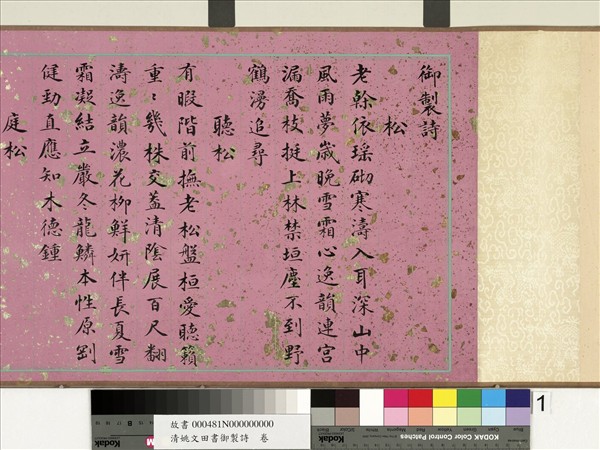 御製詩
松
老幹依瑤砌寒濤入耳深山中
風雨夢歲晚雪霜心逸韻連宮
漏喬枝挺上林禁垣塵不到野
鶴漫追尋
聽松
有暇階前撫老松盤桓愛聽籟
重〻幾株交蓋清陰展百尺翻
濤逸韻濃花柳鮮妍伴長夏雪
霜凝結立嚴冬龍鱗本性原剛
健勁直應知木德鍾
庭松
故書 000481N000000000
清姚文田書御製詩 卷
Kodak
KODAK Color Control Patches
1
M
B